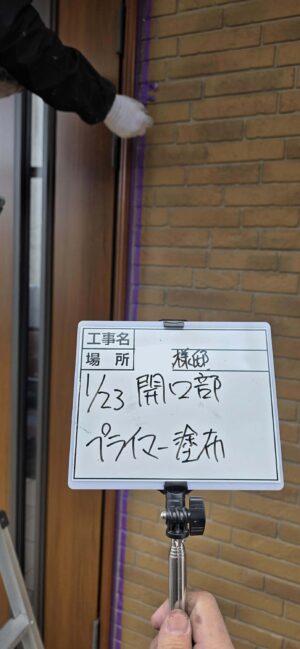 工事名
場所 様邸
1/23 開口部
プライマー塗布